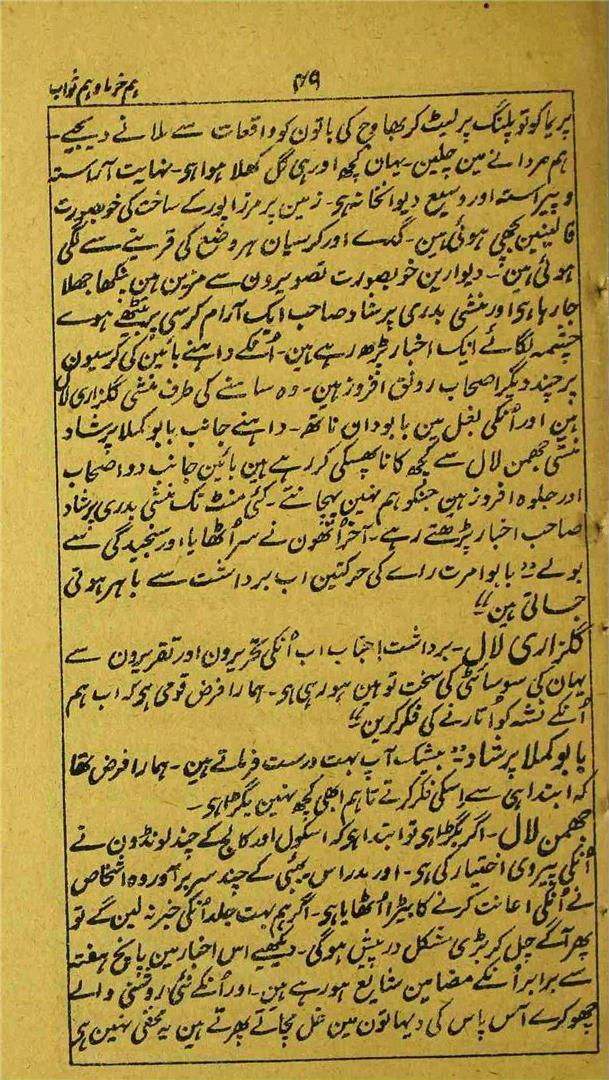 ہم خرما و ہم ثواب
۴۹
پریما کو تو پلنگ پر لیٹ کر بھاوج کی باتون کو واقعات سے ملانے دیجیے۔
ہم مردانے مین چلین۔ یہان کچھ اور ہی گل کھلا ہوا ہی۔ نہایت آراستہ
و پیراستہ اور وسیع دیوانخانہ ہی۔ زمین پر مرزاپور کے ساخت کی خوبصورت
قالینین بچھی ہوئی ہین۔ گدے اور کرسیان ہر وضع کی قرینے سے لگی
ہوئی ہین۔ دیوارین خوبصورت تصویرون سے مزین ہین پنکھا جھلا
جا رہا ہی اور منشی بدری پرشاد صاحب ایک آرام کرسی پر بیٹھے ہوے
چشمہ لگائے ایک اخبار پڑھ رہے ہین۔ اُنکے داہنے بائین کی کرسیون
پر چند دیگر اصحاب رونق افروز ہین۔ وہ سامنے کی طرف منشی گلزاری لال
ہین اور اُنکی بغل مین بابو دان ناتھ۔ داہنے جانب بابو کملا پرشاد
منشی جھمن لال سے کچھ کانا پھسکی کر رہے ہین بائین جانب دو اصحاب
اور جلوہ افروز ہین جنکو ہم نہین پہچانتے۔ کئی منٹ تک منشی بدری پرشاد
صاحب اخبار پڑھتے رہے۔ آخر اُنھون نے سر اُٹھایا اور سنجیدگی سے
بولے ”بابو امرت راے کی حرکتین اب برداشت سے باہر ہوتی
جاتی ہین“
گلزاری لال۔ برداشت! جناب اب اُنکی تحریرون اور تقریرون سے
یہان کی سوسائٹی کی سخت توہین ہو رہی ہی۔ ہمارا فرض قومی ہی کہ اب ہم
اُنکے نشہ کو اُتارنے کی فکر کرین“
بابو کملا پرشاد ”بیشک آپ بہت درست فرماتے ہین۔ ہمارا فرض تھا
کہ ابتدا ہی سے اسکی فکر کرتے تاہم ابھی کچھ نہین بگڑا ہی۔
جھمن لال۔ اگر بگڑا ہی تو ابتدا ہی کہ اسکول اور کالج کے چند لونڈون نے
اُنکی پیروی اختیار کی ہی۔ اور مدراس بمبئی کے چند سربرآوردہ اشخاص
نے اُنکی اعانت کرنے کا بیڑا اُٹھایا ہی۔ اگر ہم بہت جلد اُنکی خبر نہ لین گے تو
پھر آگے چل کر بڑی مشکل درپیش ہوگی۔ دیکھیے اس اخبار مین پانچ ہفتہ
سے برابر اُنکے مضامین شایع ہو رہے ہین۔ اور اُنکے نئی روشنی والے
چھوکرے آس پاس کی دیہاتون مین غل مچاتے پھرتے ہین یہ مخفی نہین ہی